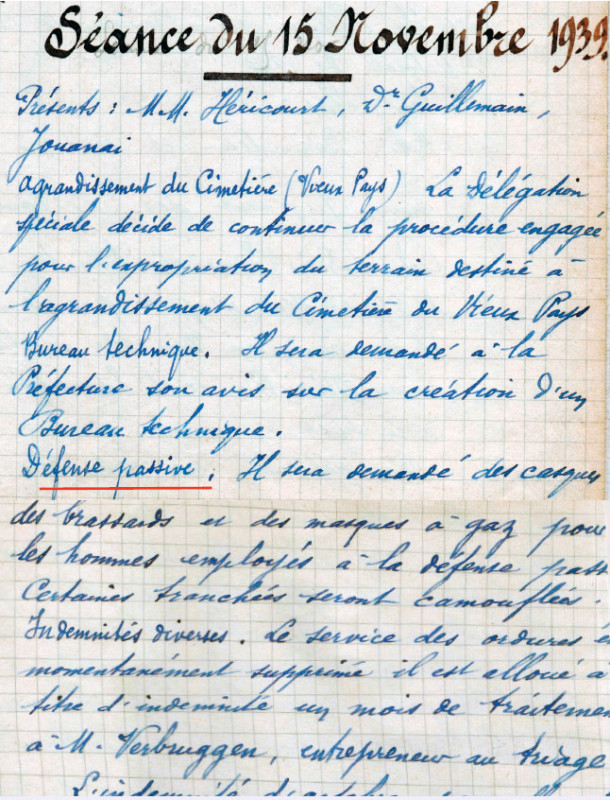 Séance du 15 Novembre 1939.
Présents : M.M. Héricourt, Dr Guillemain,
Jouanai
agrandissement du Cimetière (Vieux Pays) La Délégation
spéciale décide de continuer la procédure engagée
pour l'expropriation du terrain destiné à
l'agrandissement du Cimetière du Vieux Pays
Bureau technique. Il sera demandé à la
Préfecture son avis sur la création d'un
Bureau technique.
Défense passive. Il sera demandé des casques
des brassards et des masques à gaz pour
les hommes employés à la défense pass
Certaines tranchées seront camouflées.
Indemnités diverses. Le service des ordures é
momentanément supprimé il est alloué à
titre d'indemnité un mois de traitemen
à M. Verbruggen, entrepreneur au triage
L'indemnité